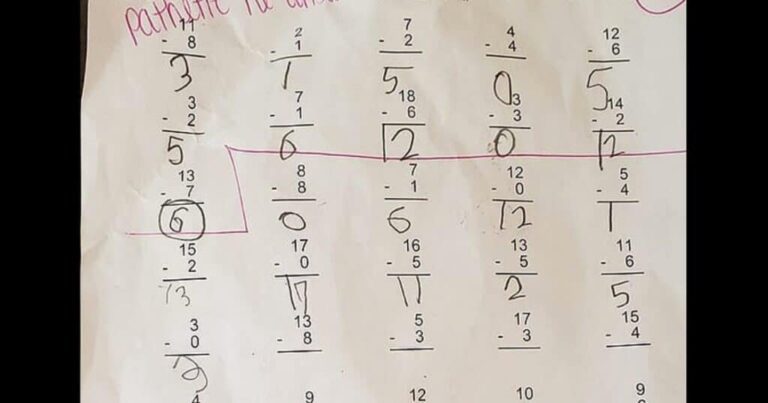 pathetic
11 2 7 4 12
- 8 - 1 - 2 - 4 - 6
3 1 5 0 5
3 7 18 3 14
- 2 - 1 - 6 - 3 - 2
5 6 12 0 12
13 8 7 12 5
- 7 - 8 - 1 - 0 - 4
6 0 6 12 1
15 17 16 13 11
- 2 - 0 - 5 - 5 - 6
13 17 11 2 5
3 13 5 17 15
- 0 - 8 - 3 - 3 - 4
3
4 9 12 10 9